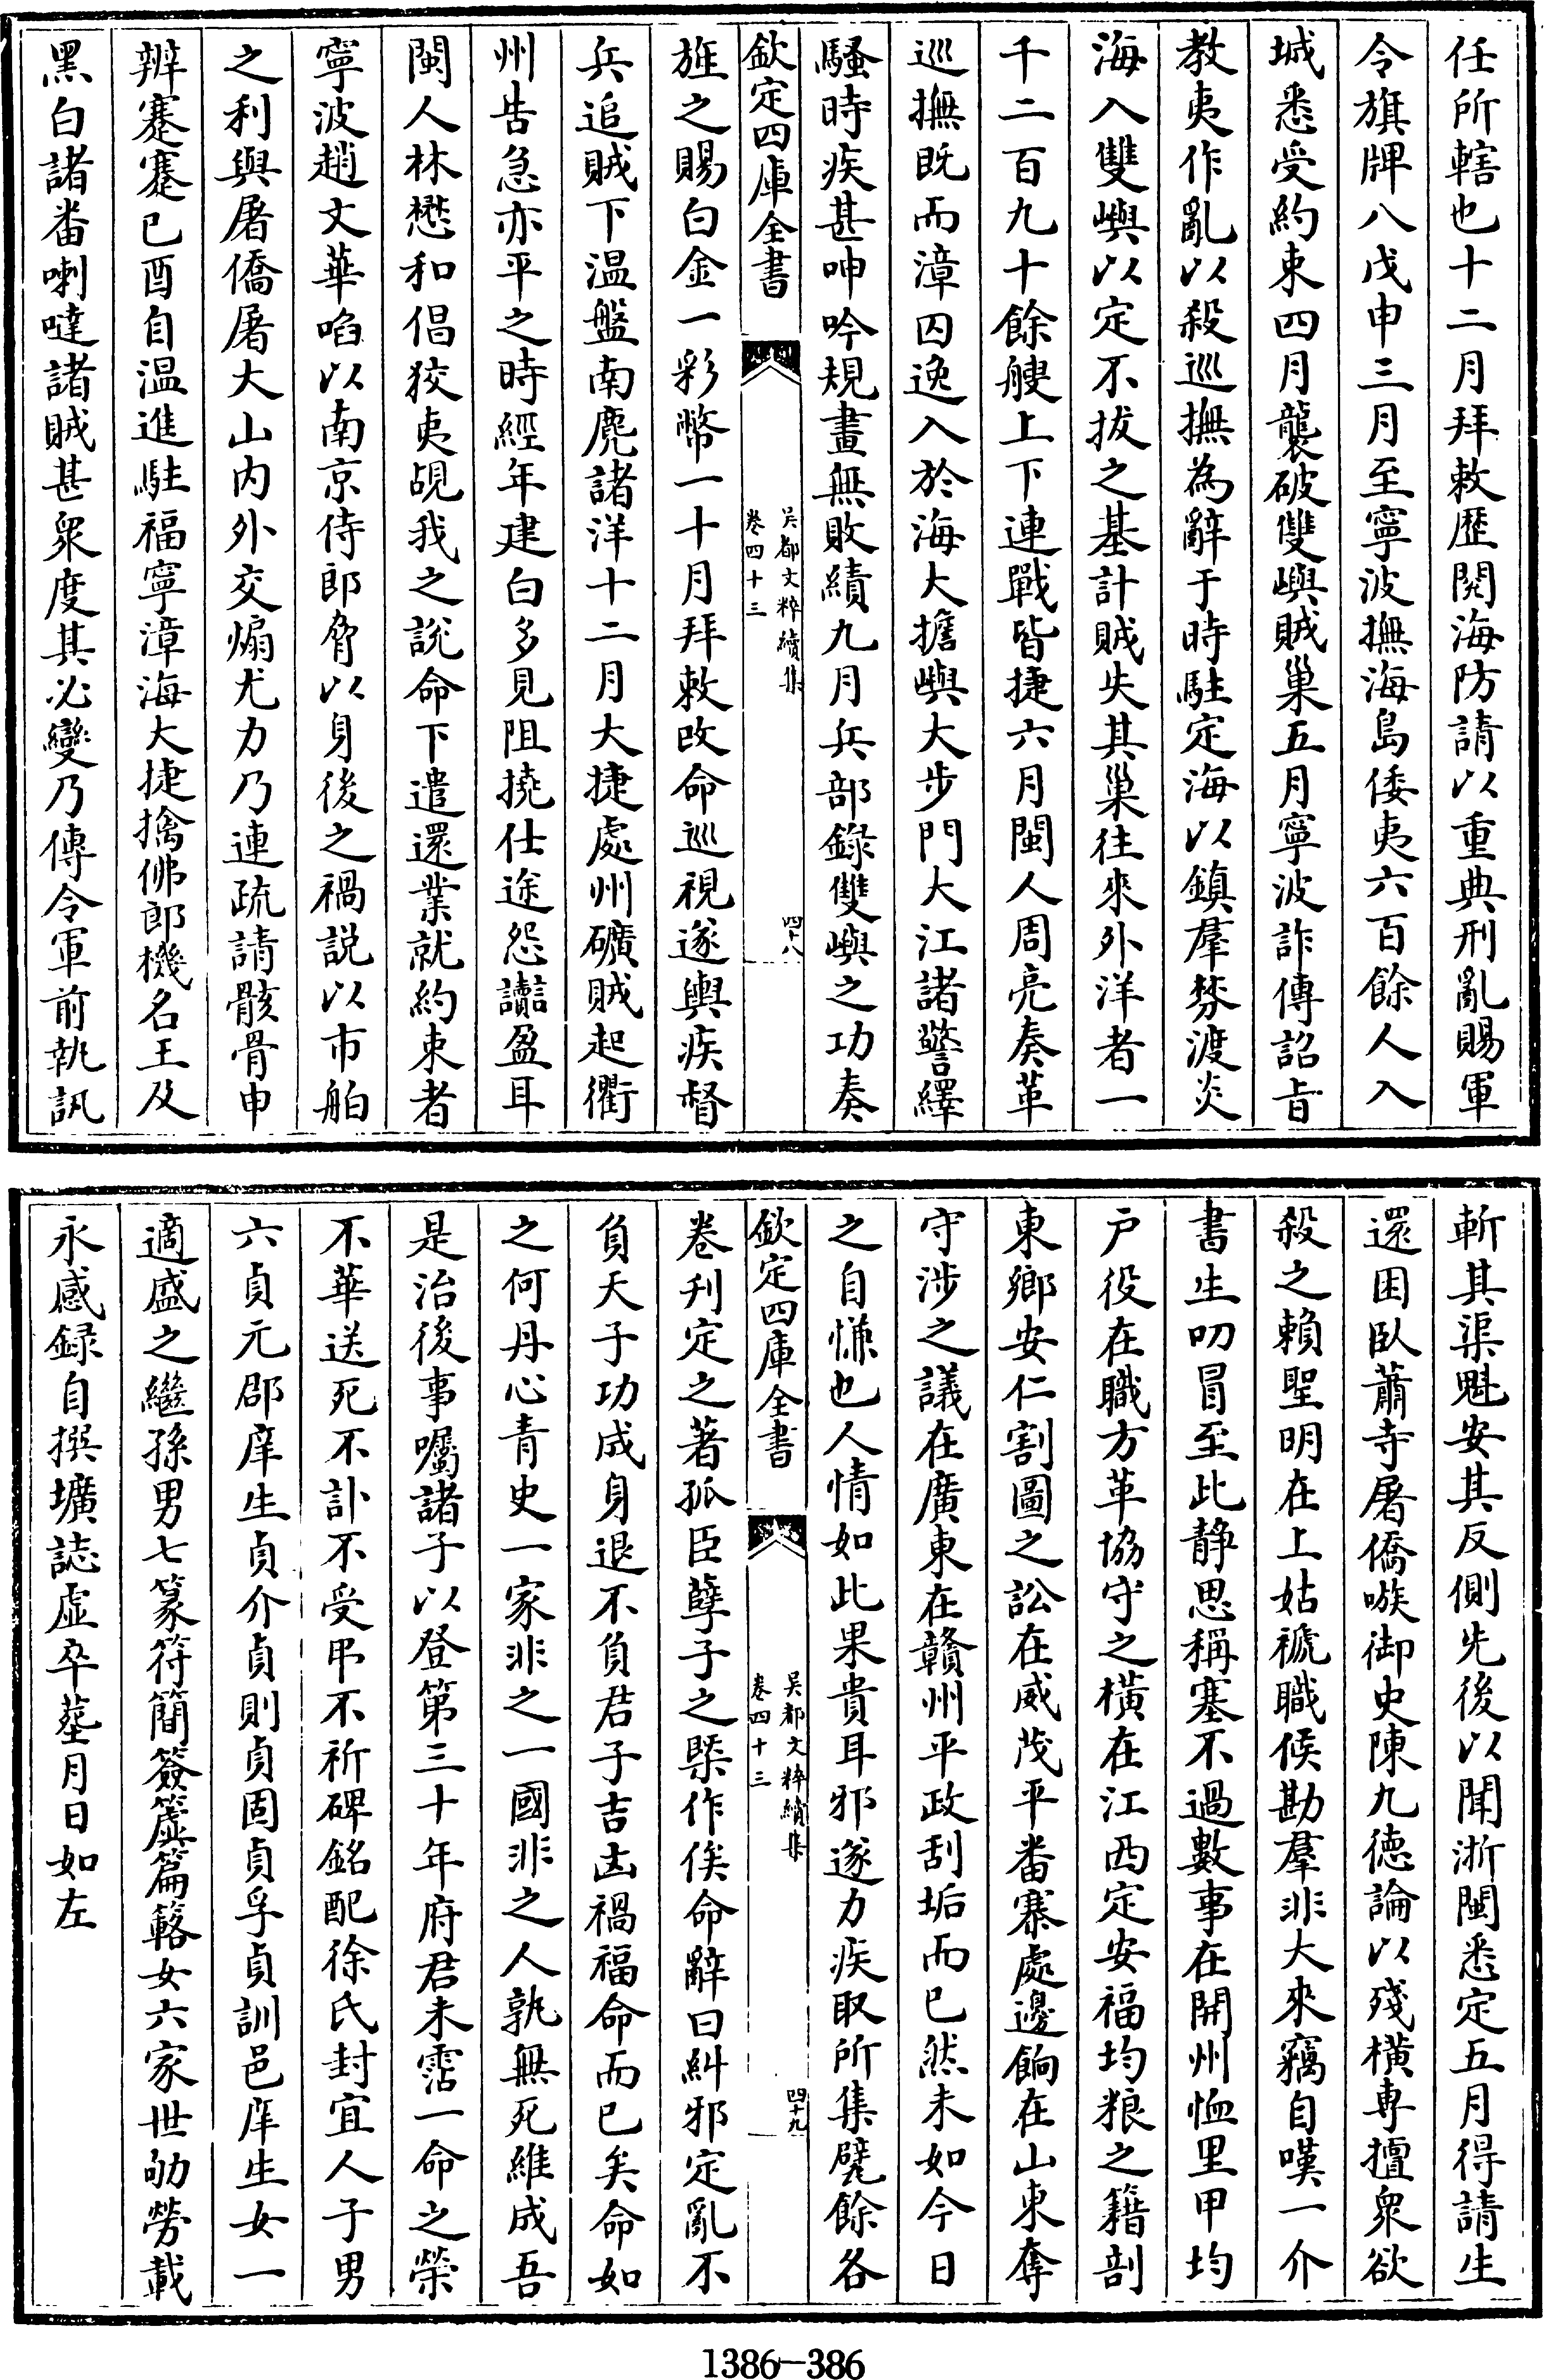 任所轄也十二月拜敕歷閱海防請以重典刑亂賜軍
令旗牌八戊申三月至寧波撫海島倭夷六百餘人入
城悉受約束四月襲破雙嶼賊巢五月寧波詐傳詔旨
教夷作亂以殺巡撫為辭于時駐定海以鎮羣嫠渡炎
海入雙嶼以定不拔之基計賊失其巢往來外洋者一
千二百九十餘艘上下連戰皆捷六月閩人周亮奏革
巡撫既而漳囚逸入於海大擔嶼大步門大江諸警繹
騷時疾甚呻吟規畫無敗績九月兵部錄雙嶼之功奏
欽定四庫全書
吳都文粹續集
卷四十三
四十八
旌之賜白金一彩幣一十月拜敕改命巡視遂輿疾督
兵追賊下温盤南麂諸洋十二月大捷處州礦賊起衢
州告急亦平之時經年建白多見阻撓仕途怨讟盈耳
閩人林懋和倡狡夷覘我之說命下遣還業就約束者
寧波趙文華啗以南京侍郎脅以身後之禍説以市舶
之利與屠僑屠大山内外交煽尤力乃連疏請骸骨申
辨蹇蹇已酉自溫進駐福寧漳海大捷擒佛郎機名王及
黑白諸番喇噠諸賊甚衆度其必變乃傳令軍前執訊
斬其渠魁安其反側先後以聞浙閩悉定五月得請生
還困臥蕭寺屠僑嗾御史陳九德論以殘橫專擅衆欲
殺之賴聖明在上姑褫職候勘羣非大來竊自嘆一介
書生叨冒至此静思稱塞不過數事在開州恤里甲均
户役在職方革協守之橫在江西定安福均粮之籍剖
東鄉安仁割圖之訟在威茂平番寨處邊餉在山東奪
守涉之議在廣東在贛州平政刮垢而已然未如今日
之自慊也人情如此果貴耳邪遂力疾取所集甓餘各
欽定四庫全書
吳都文粹續集
卷四十三
四十九
卷刋定之著孤臣孽子之槩作俟命辭曰糾邪定亂不
負天子功成身退不負君子吉凶禍福命而已矣命如
之何丹心青史一家非之一國非之人孰無死維成吾
是治後事囑諸子以登第三十年府君未霑一命之榮
不華送死不訃不受弔不祈碑銘配徐氏封宜人子男
六貞元郡庠生貞介貞則貞固貞孚貞訓邑庠生女一
適盛之繼孫男七篆符簡簽簴篇簵女六家世劬勞載
永感録自撰壙誌虛卒塟月日如左
1386—386